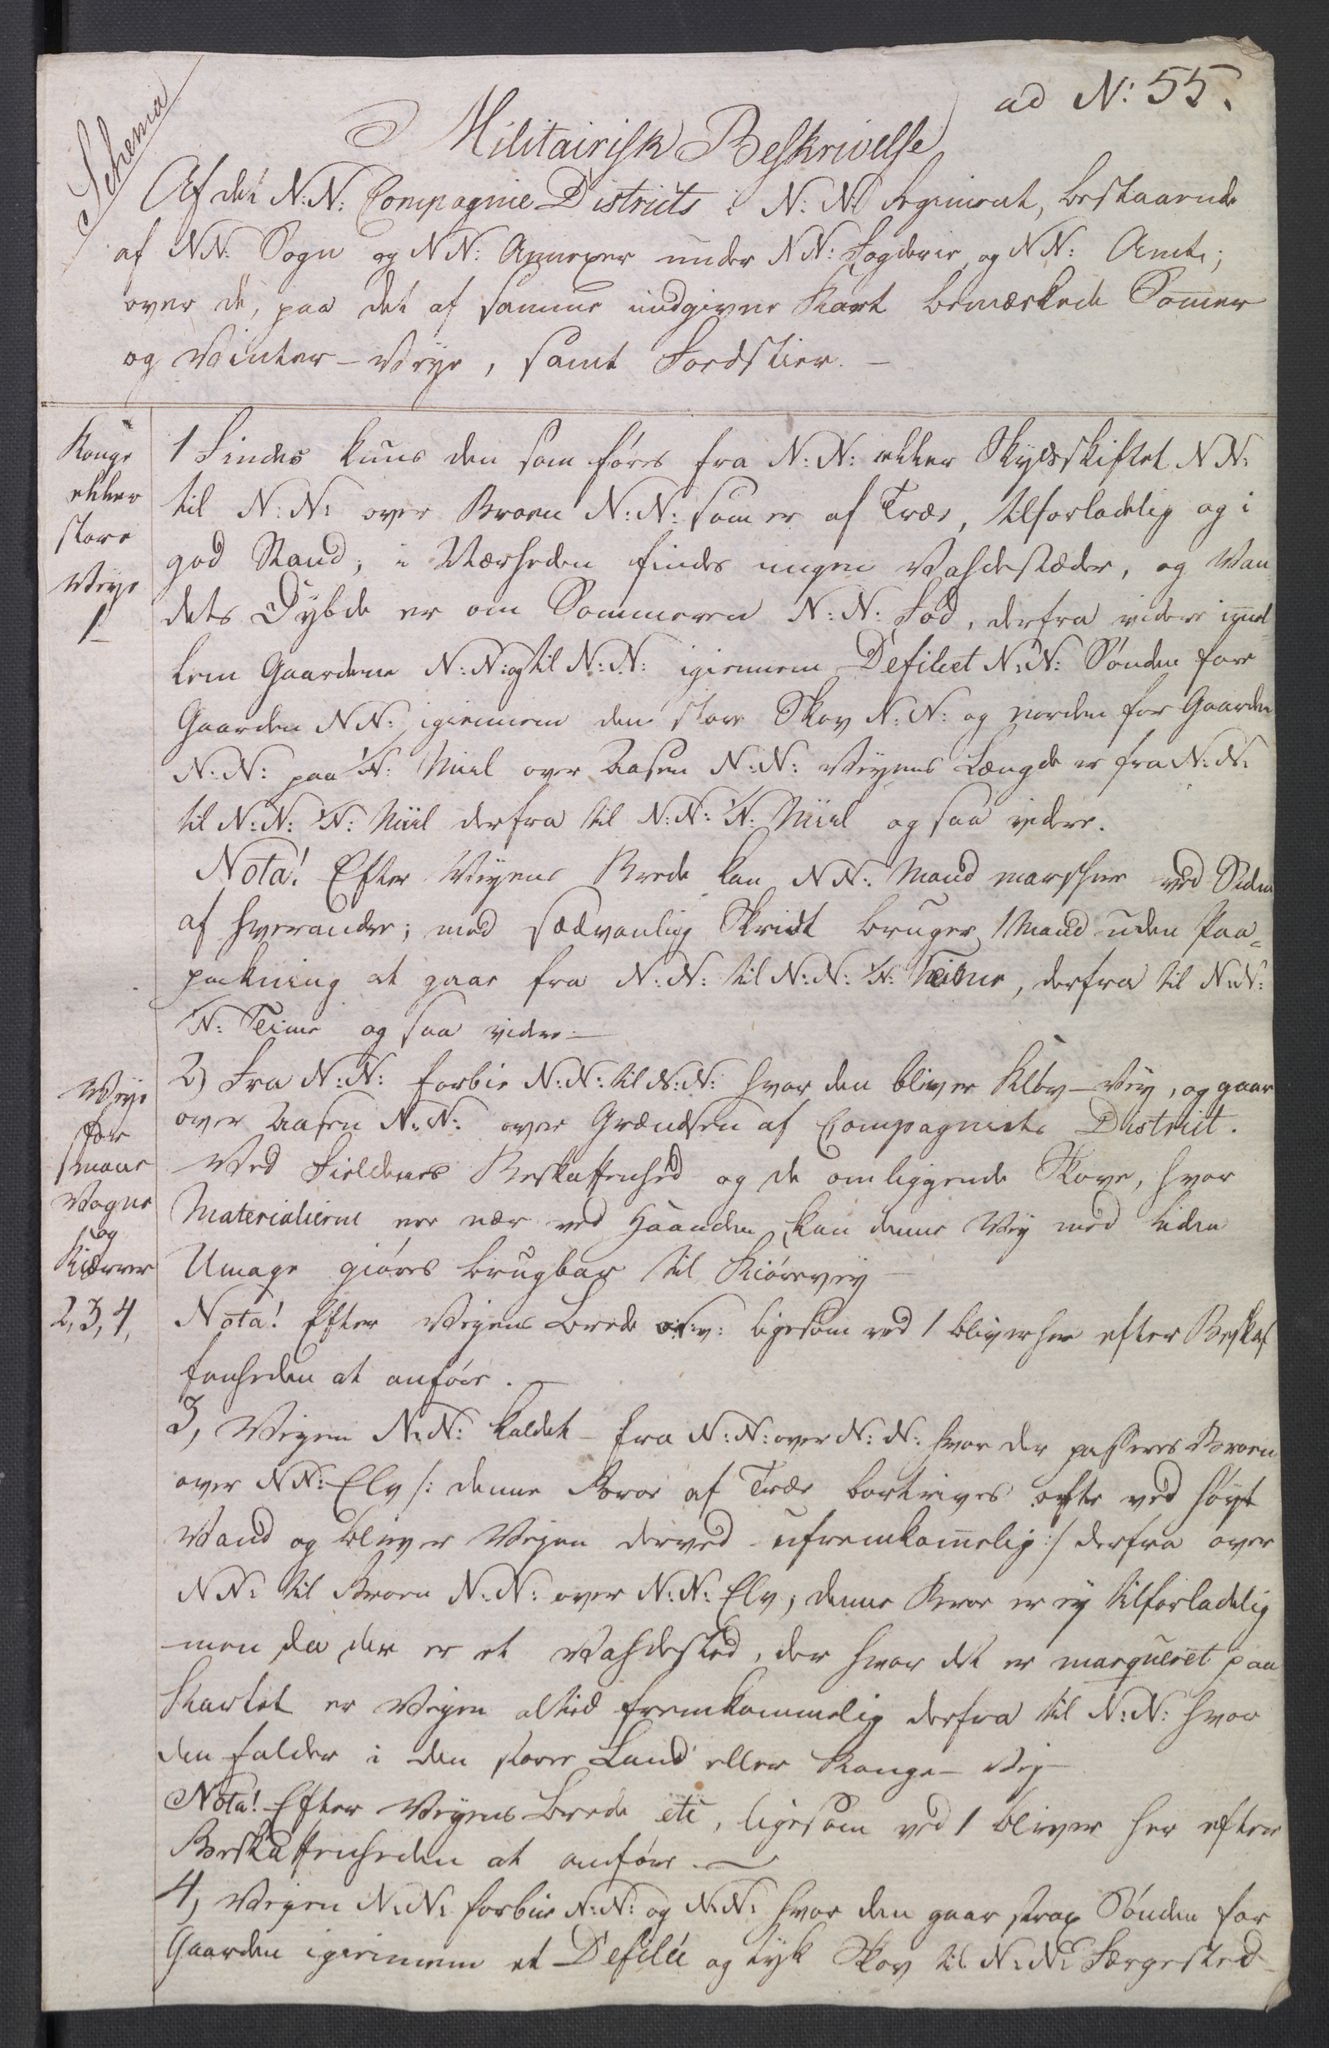 ad N: 55.
Schema
Militairisk Beskrivelse
Af det N:N: Compagnie Districts i N:N: Regiment, bestaaende
af NN: Sogn og NN: Annexer under NN: Fogderie og NN: Amt;
over de, paa det af samme indgivne Kart bemærkede Somer
og Vinter-Veye, samt Fodstier. -
Konge
eller
store
Veye
1
1 Findes kuns den som föres fra N:N: eller Skydsskiftet NN:
til N:N: over Broen N:N: som er af Træe, tilforladelig og i
god Stand; i Nærheden findes ingen Vahdestæder, og Van
dets Dybde er om Sommeren N:N: Fod, derfra videre imel-
lem Gaardene N:N: og til N:N: igiennem Defileet N:N: Sönden for
Gaarden NN: igiennem den store Skov N:N: og norden for Gaarden
N:N: paa 1/N: Miil over Aasen N:N: Veyens Længde er fra N:N:
til N:N: 1/N: Miil derfra til N:N: 1/N: Miil og saa videre.
Nota! Efter Veyens Brede kan NN: Mand marschere ved Siden
af hverandre; med sædvanlig Skridt bruger 1 Mand uden Paa-
pakning at gaae fra N:N: til N:N: 1/N: Time, derfra til N:N:
1/N: Time og saa videre. -
Veye
for
smaae
Vogne
og
Kiærrer
2, 3, 4,
2) Fra N:N: forbie N:N: til N:N: hvor den bliver Klöv-Vey, og gaar
over Aasen N:N: over Grændsen af Compagniets District.
Ved Fieldenes Beskaffenhed og de omliggende Skove, hvor
Materialierne ere nær ved Haanden, kan denne Vey med liden
Umage giöres brugbar til Kiörevey -
Nota! Efter Veyens Brede ligesom ved 1 bliver her efter Beskaf
fenheden at anföre. -
3, Veyen N:N: kaldet - fra N:N: over N:N: hvor der passeres Broen
over NN: Elv /: denne Broe af Træe bortrives ofte ved höyt
Vand og bliver Veyen derved ufremkomelig :/ derfra over
NN: til Broen N:N: over N:N: Elv; denne Broe er ey tilforladelig
men da der er et Vahdested, der hvor det er marqueret paa
Kartet er Veyen altid fremkommelig derfra til N:N: hvor
den falder i den store Land eller Konge-Vey -
Nota! Efter Veyens Brede etc, ligesom ved 1 bliver her efter
Beskaffenheden at anföre. -
4, Veyen N:N: forbie N:N: og N:N: hvor den gaar strax Sönden for
Gaarden igiennem et Defilée og tyk Skov til N:N: Færgested